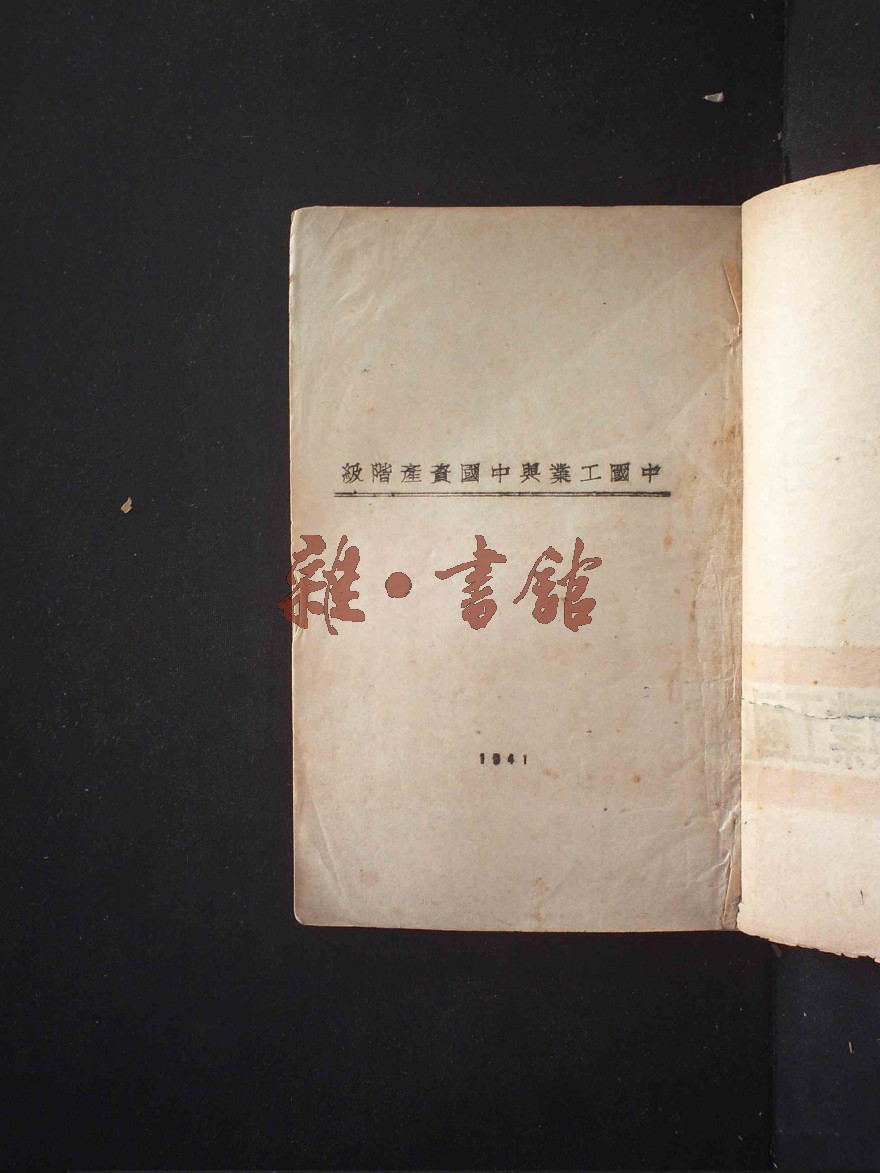 中國工業與中國資產階級
雜·書館
1941